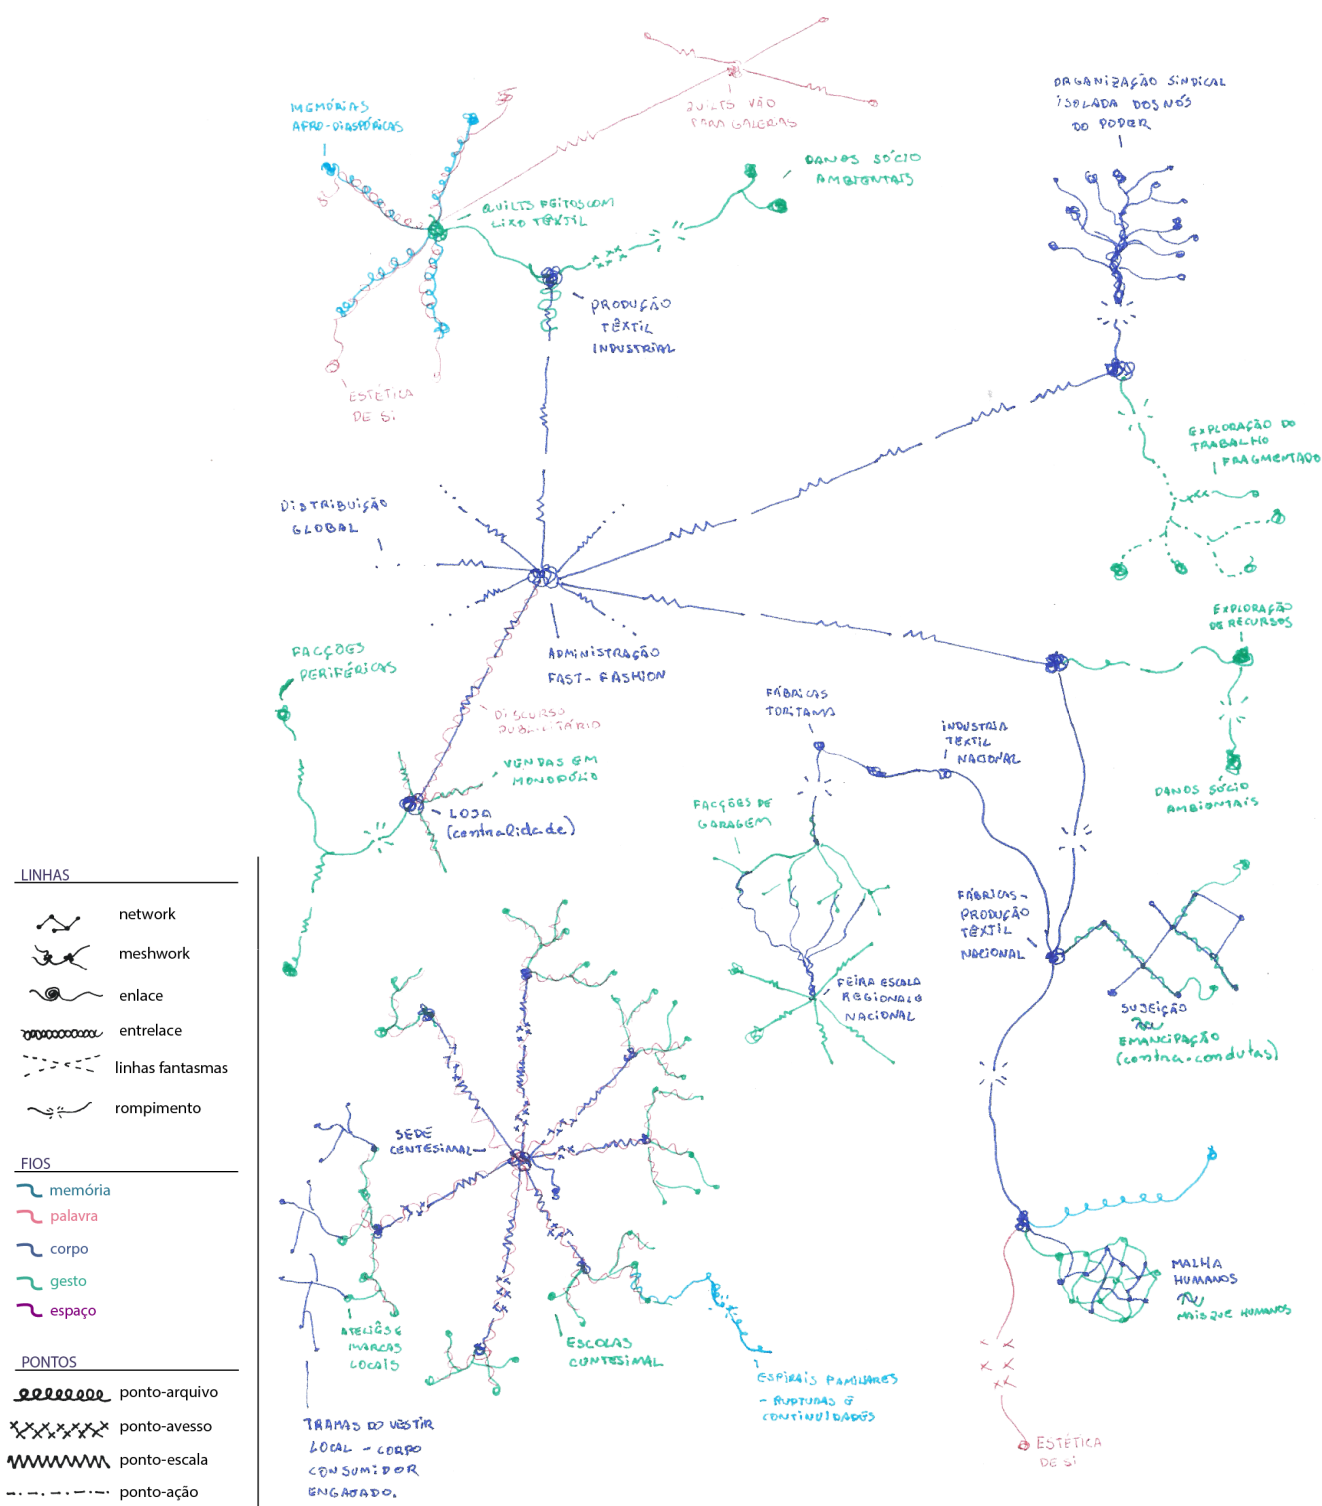 MEMÓRIAS
AFRO-DIASPÓRICAS
QUILTS VÃO
PARA GALERIAS
ORGANIZAÇÃO SINDICAL
ISOLADA DOS NÓS
DO PODER
DANOS SÓCIO
AMBIENTAIS
QUILTS FEITOS COM
LIXO TÊXTIL
PRODUÇÃO
TÊXTIL
INDUSTRIAL
ESTÉTICA
DE SI
EXPLORAÇÃO DO
TRABALHO
FRAGMENTADO
DISTRIBUIÇÃO
GLOBAL
ADMINISTRAÇÃO
FAST-FASHION
EXPLORAÇÃO
DE RECURSOS
FACÇÕES
PERIFÉRICAS
DISCURSO
PUBLICITÁRIO
VENDAS EM
MONOPÓLIO
LOJA
(centralidade)
FÁBRICAS
TORITAMA
INDUSTRIA
TEXTIL
NACIONAL
FACÇÕES DE
GARAGEM
DANOS SÓCIO
AMBIENTAIS
FÁBRICAS-
PRODUÇÃO
TÊXTIL
NACIONAL
FEIRA ESCALA
REGIONAL E
NACIONAL
SUJEIÇÃO
EMANCIPAÇÃO
(contra-condutas)
SEDE
CENTESIMAL
ATELIÊS E
MARCAS
LOCAIS
ESCOLAS
CENTESIMAL
ESPIRAIS FAMILIARES
- RUPTURAS E
CONTINUIDADES
MALHA
HUMANOS
MAIS QUE HUMANOS
TRAMAS DO VESTIR
LOCAL - CORPO
CONSUMIDOR
ENGAJADO.
ESTÉTICA
DE SI
LINHAS
network
meshwork
enlace
entrelace
linhas fantasmas
rompimento
FIOS
memória
palavra
corpo
gesto
espaço
PONTOS
ponto-arquivo
ponto-avesso
ponto-escala
ponto-ação